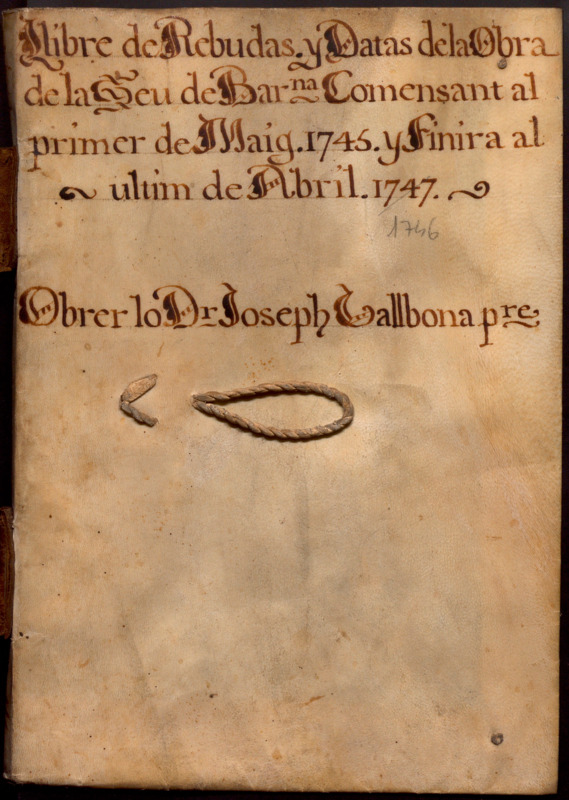 Llibre de Rebudas. y Datas de la Obra
de la Seu de Barna Comensant al
primer de Maig. 1745. y Finira al
ultim de Abril. 1747.
1746
Obrer lo Dr Joseph Vallbona pre.